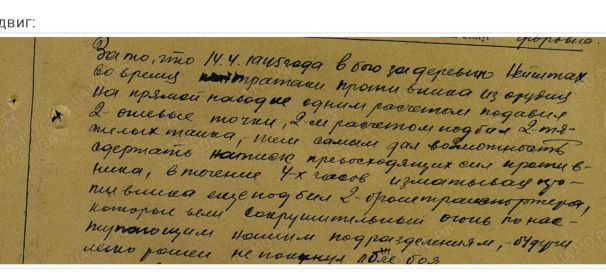 двиг:
За то, что 14.4.1945 года в бою за деревню Нейштах
во время контратаки противника из орудия
на прямой наводке одним расчетом подавил
2-огневые точки, 2-м расчетом подбил 2-тя-
желых танка, тем самым дал возможность
сдержать натиск превосходящих сил против-
ника, в течение 4-х часов изматывая про-
тивника еще подбил 2-бронетранспортера,
которые вели сокрушительный огонь по нас-
тупающим нашим подразделениям, -будучи
легко ранен не покинул поле боя